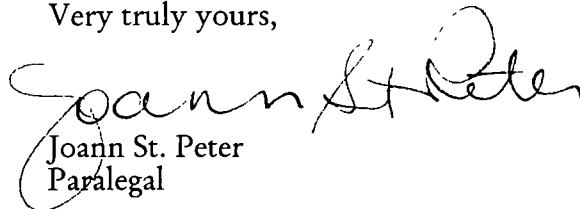 Very truly yours,
Joann St. Peter
Joann St. Peter
Paralegal